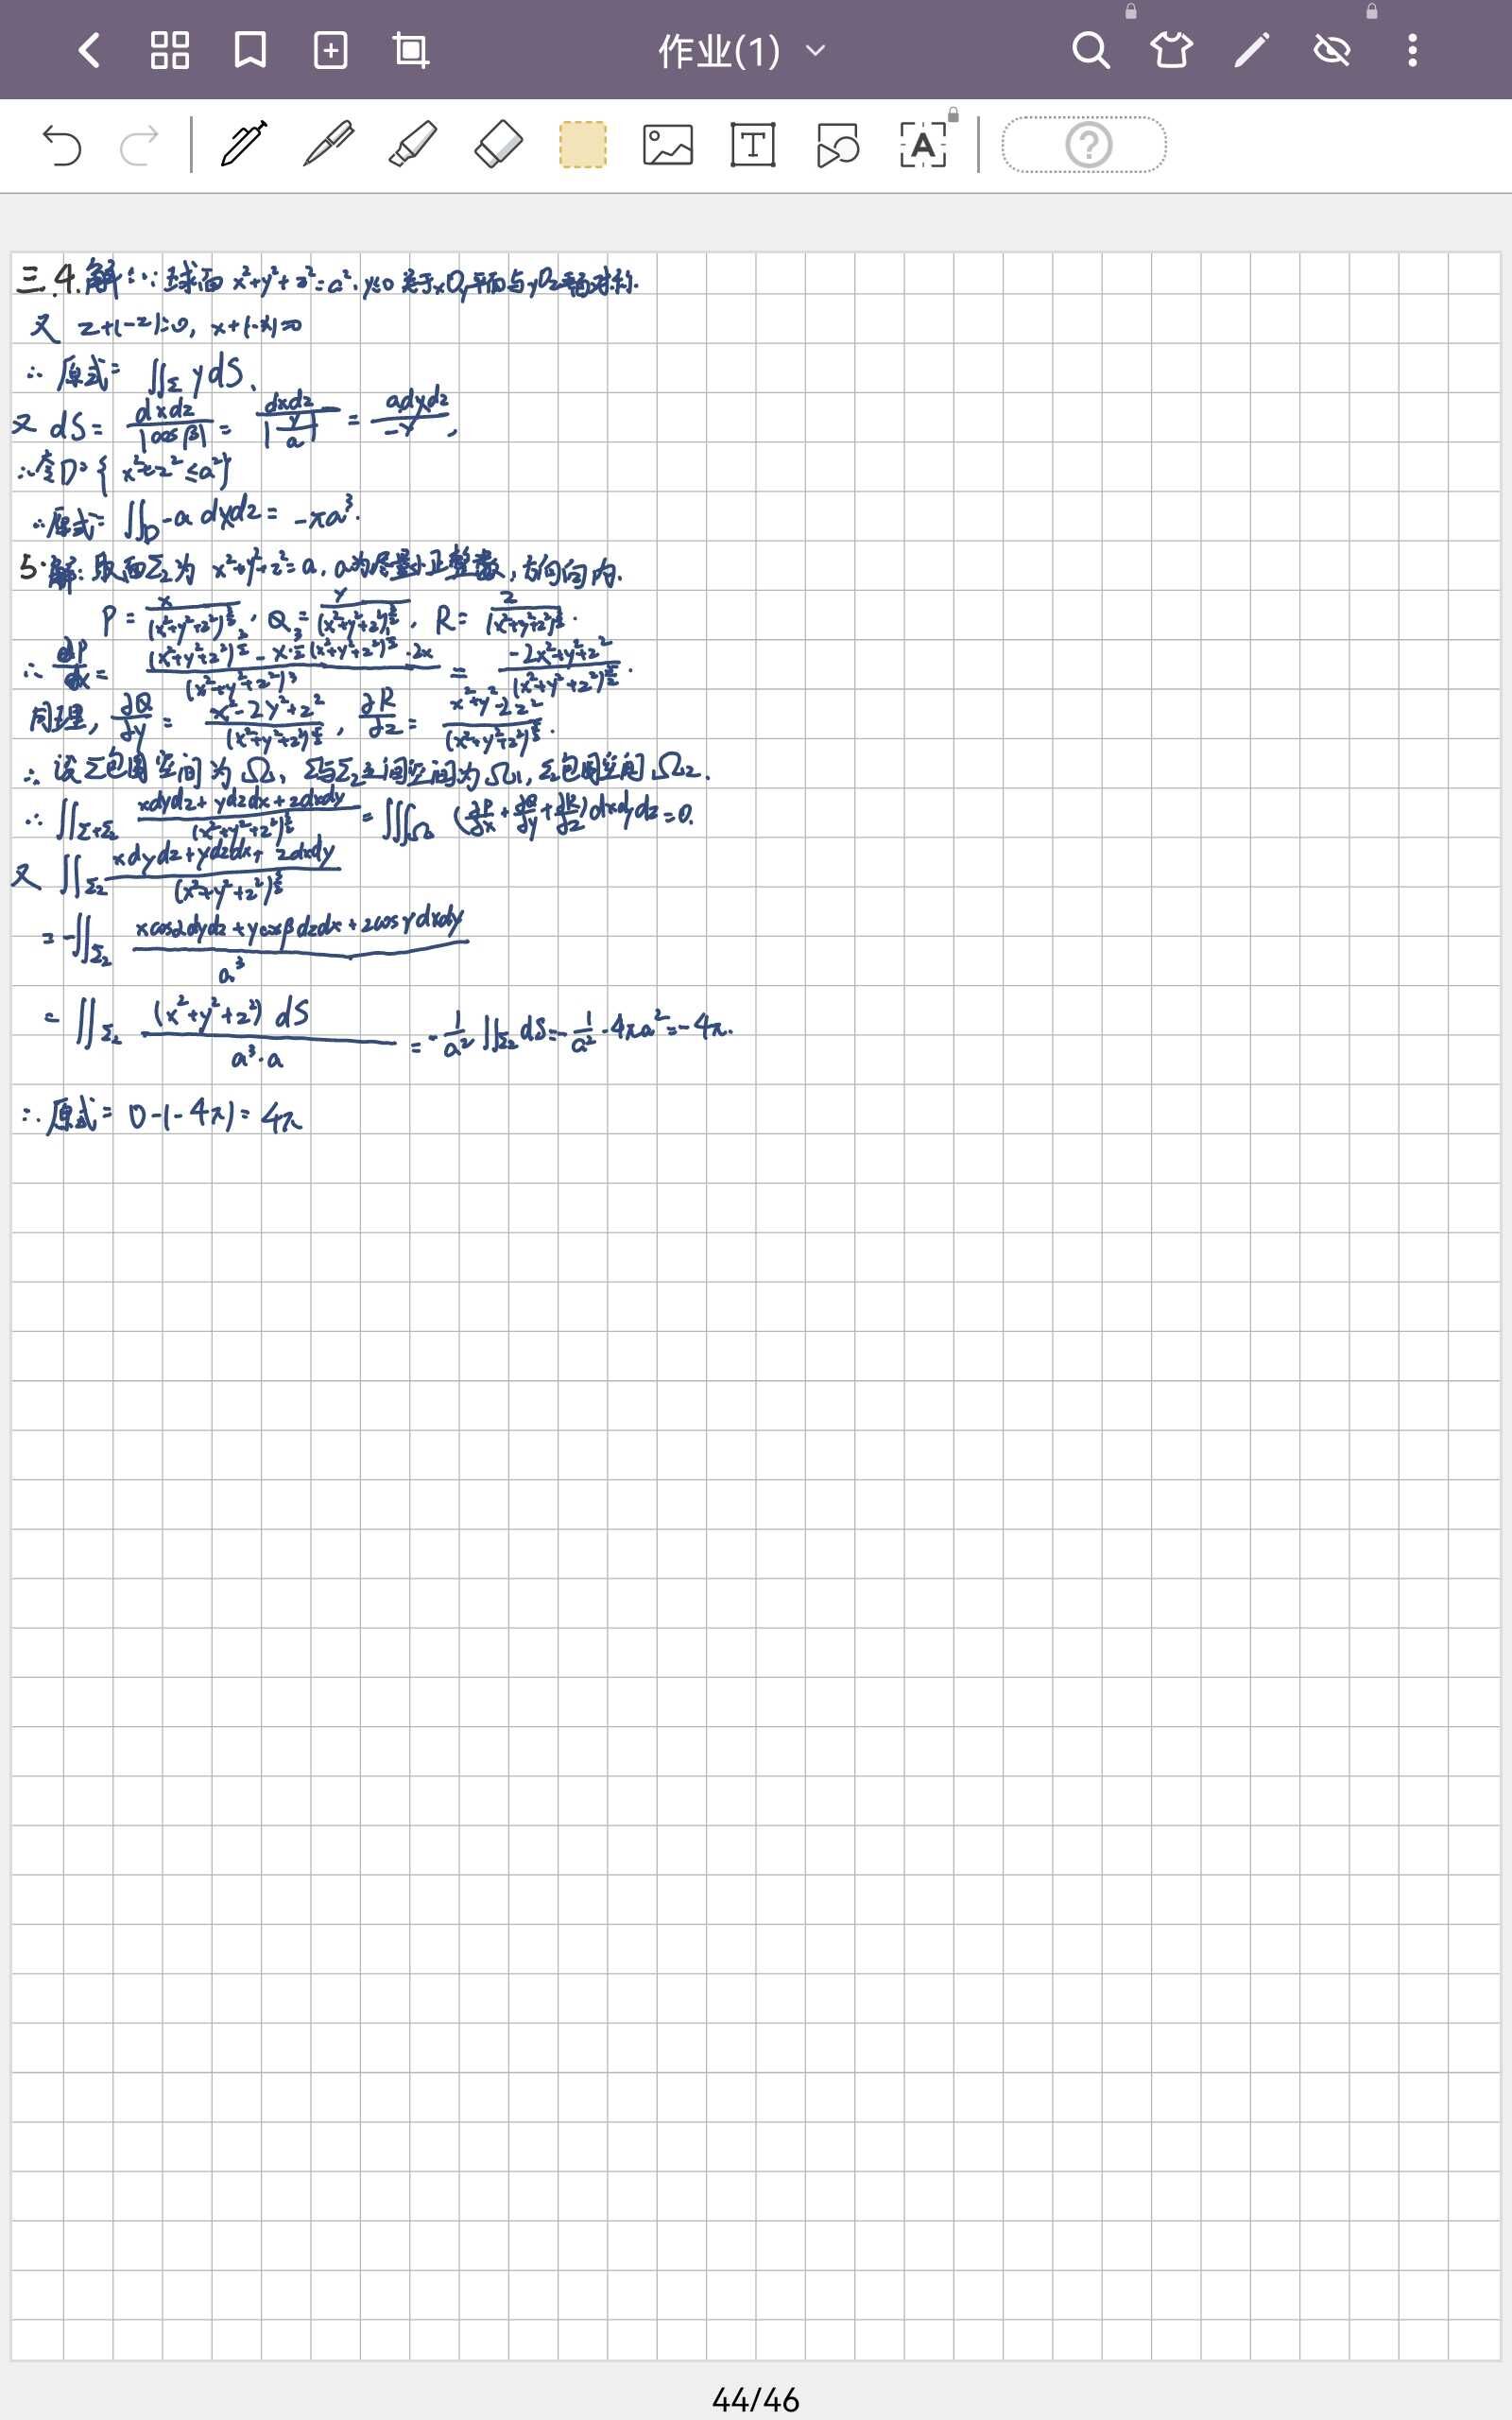 作业(1)
三.4.解:∵球面x²+y²+z²=a²,y≤0关于xOy平面与yOz平面对称.
又 z+(-z)=0, x+(-x)=0
∴原式=∬_Σ ydS.
又 dS=dxdz/|cosβ|=dxdz/|y/a|=adxdz/-y,
∴令D={x²+z²≤a²}
∴原式=∬_D -a dxdz=-πa³.
5.解:取面Σ₂为 x²+y²+z²=a, a为尽量小正整数,方向向内.
P=x/(x²+y²+z²)^(3/2), Q=y/(x²+y²+z²)^(3/2), R=z/(x²+y²+z²)^(3/2).
∴∂P/∂x=((x²+y²+z²)^(3/2)-x·3/2(x²+y²+z²)^(1/2)·2x)/(x²+y²+z²)³=(-2x²+y²+z²)/(x²+y²+z²)^(5/2).
同理,∂Q/∂y=(x²-2y²+z²)/(x²+y²+z²)^(5/2), ∂R/∂z=(x²+y²-2z²)/(x²+y²+z²)^(5/2).
∴设Σ包围空间为Ω,Σ与Σ₂之间空间为Ω₁,Σ₂包围空间Ω₂.
∴∬_Σ+Σ₂ (xdydz+ydzdx+zdxdy)/(x²+y²+z²)^(3/2)=∭_Ω(∂P/∂x+∂Q/∂y+∂R/∂z)dxdydz=0.
又∬_Σ₂ (xdydz+ydzdx+zdxdy)/(x²+y²+z²)^(3/2)
=-∬_Σ₂ (xcosαdydz+ycosβdzdx+zcosγdxdy)/a³
=∬_Σ₂ (x²+y²+z²)dS/(a³·a)=-1/a²∬_Σ₂dS=-1/a²·4πa²=-4π.
∴原式=0-(-4π)=4π
44/46